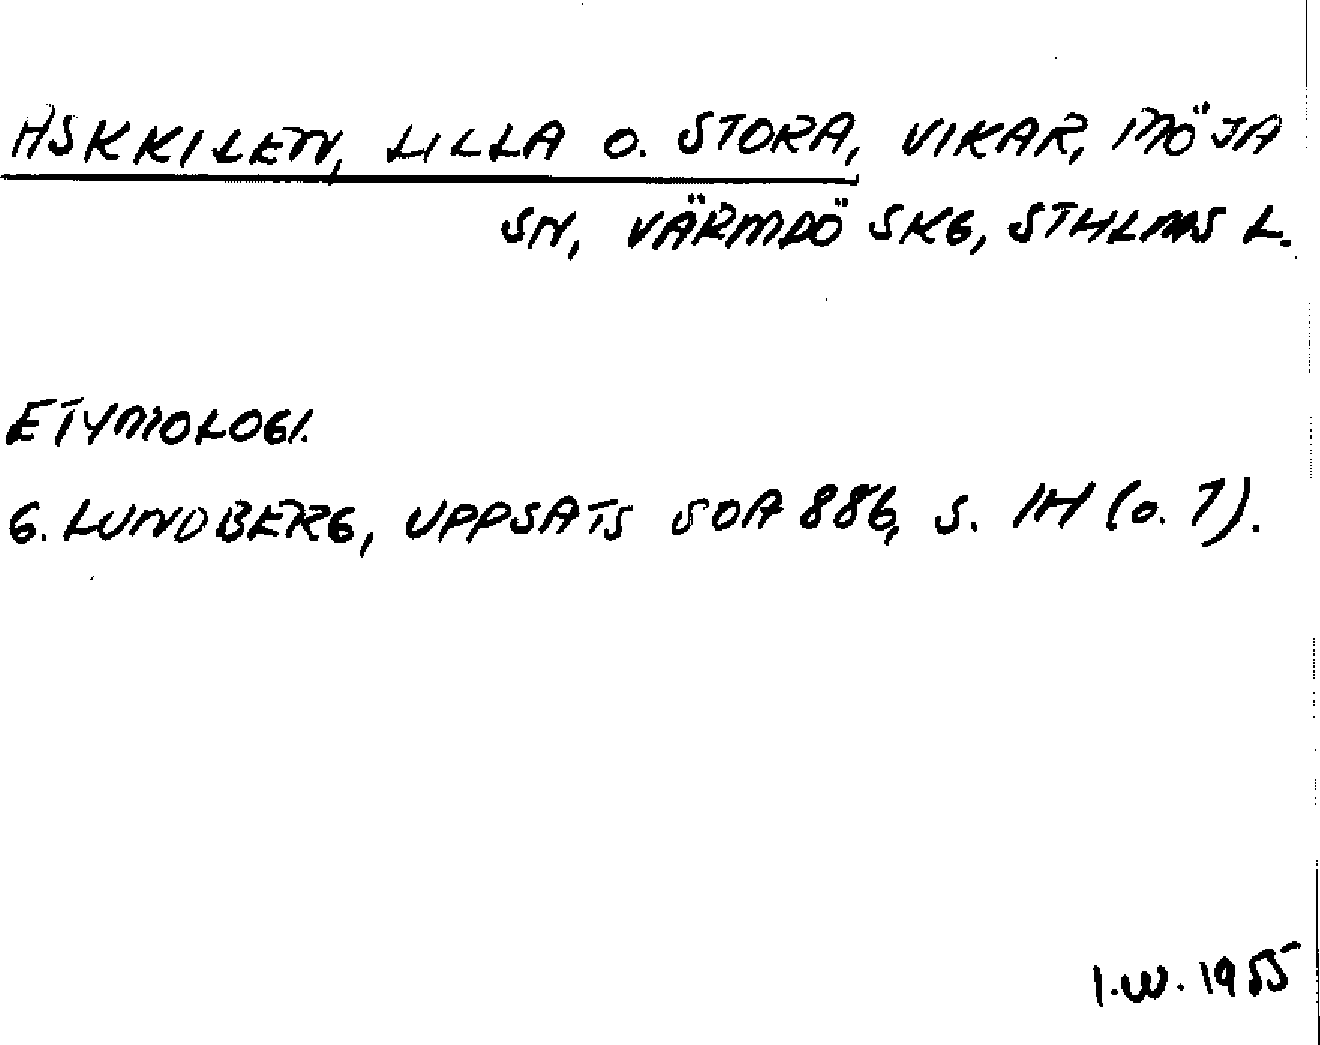 ASKKILEN, LILLA O. STORA, VIKAR, MÖJA
SN, VÄRMDÖ SKG, STHLMS L.
ETYMOLOGI.
G. LUNDBERG, UPPSATS SOA 886, S. 14 (O. 7).
I.W. 1955